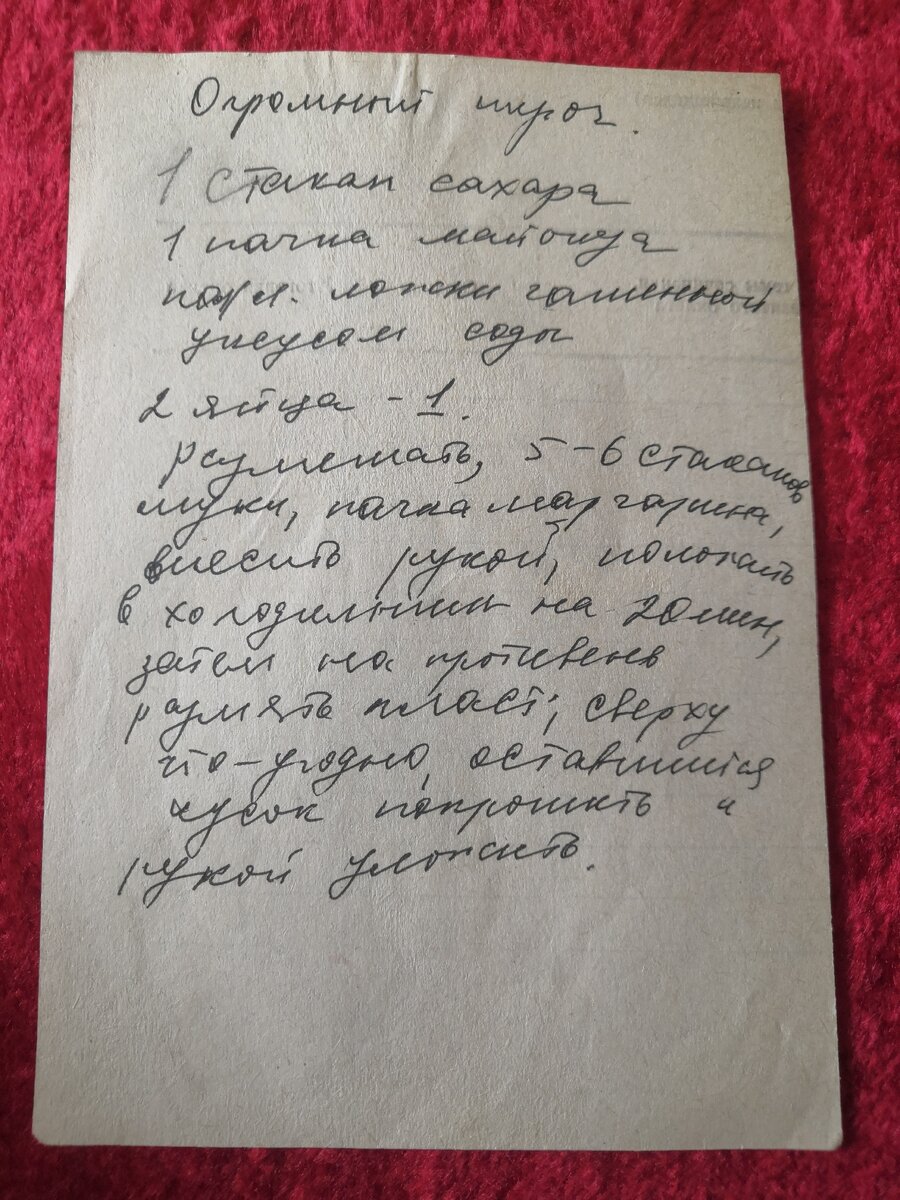 Огромный пирог.
1 стакан сахара
1 пачка майонеза
пол л. ложки гашенной
уксусом соды
2 яйца - 1.
Размешать, 5-6 стаканов
муки, пачка маргарина,
вмесить рукой, положить
в холодильник на 20 мин,
затем на противень
размять пласт; сверху
что-угодно, оставшийся
кусок покрошить и
рукой уложить.